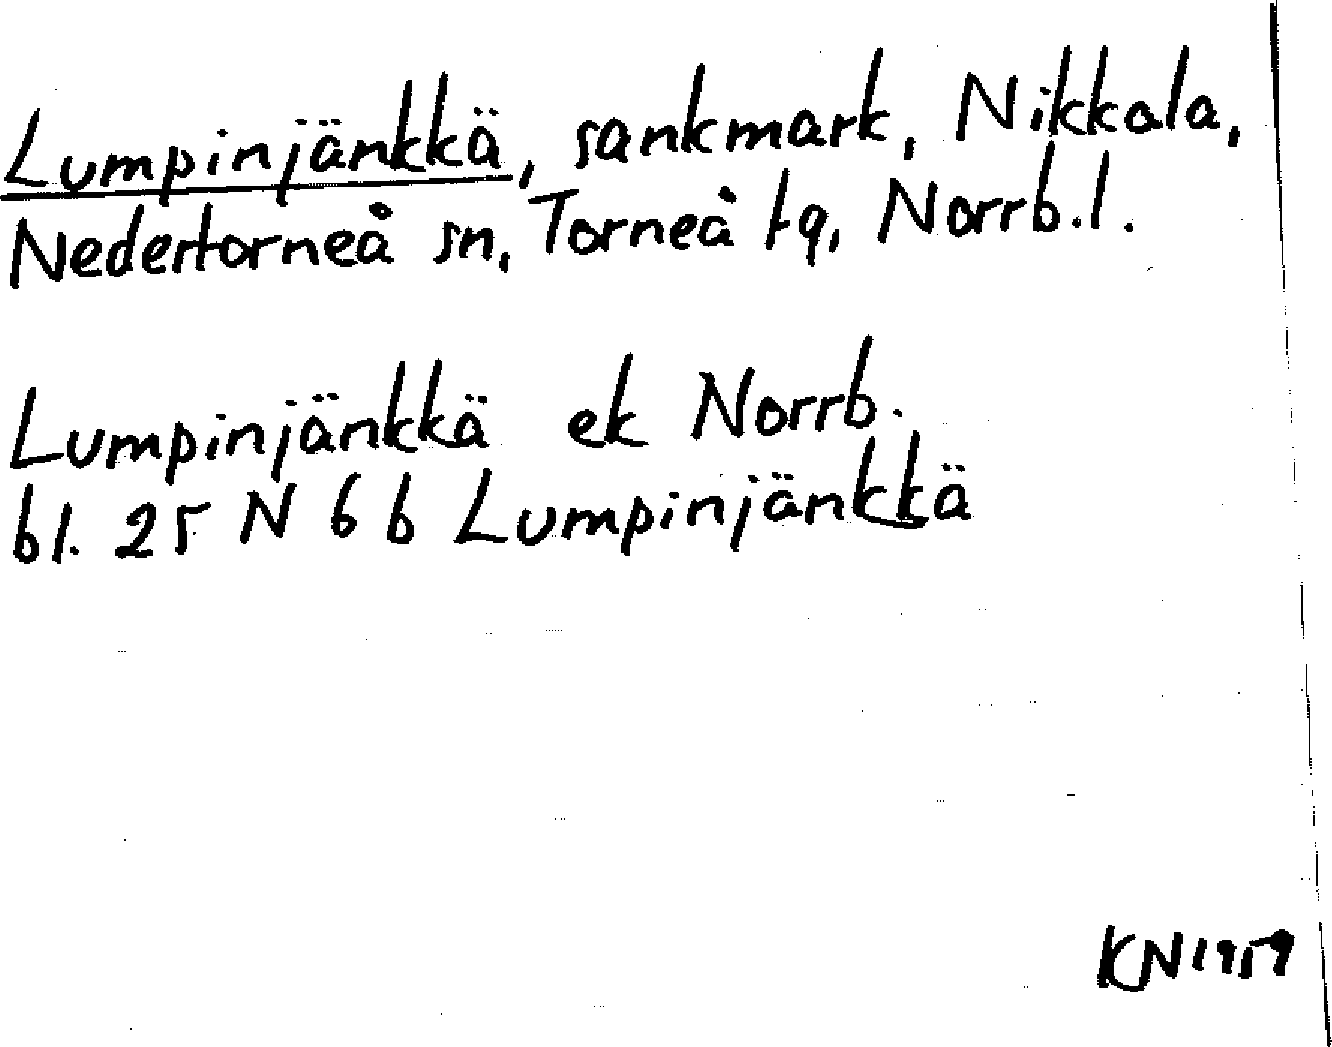 Lumpinjänkkä, sankmark, Nikkala,
Nedertorneå sn, Torneå tg, Norrb.l.
Lumpinjänkkä ek Norrb.
bl. 25 N 6 b Lumpinjänkkä
KN 1959